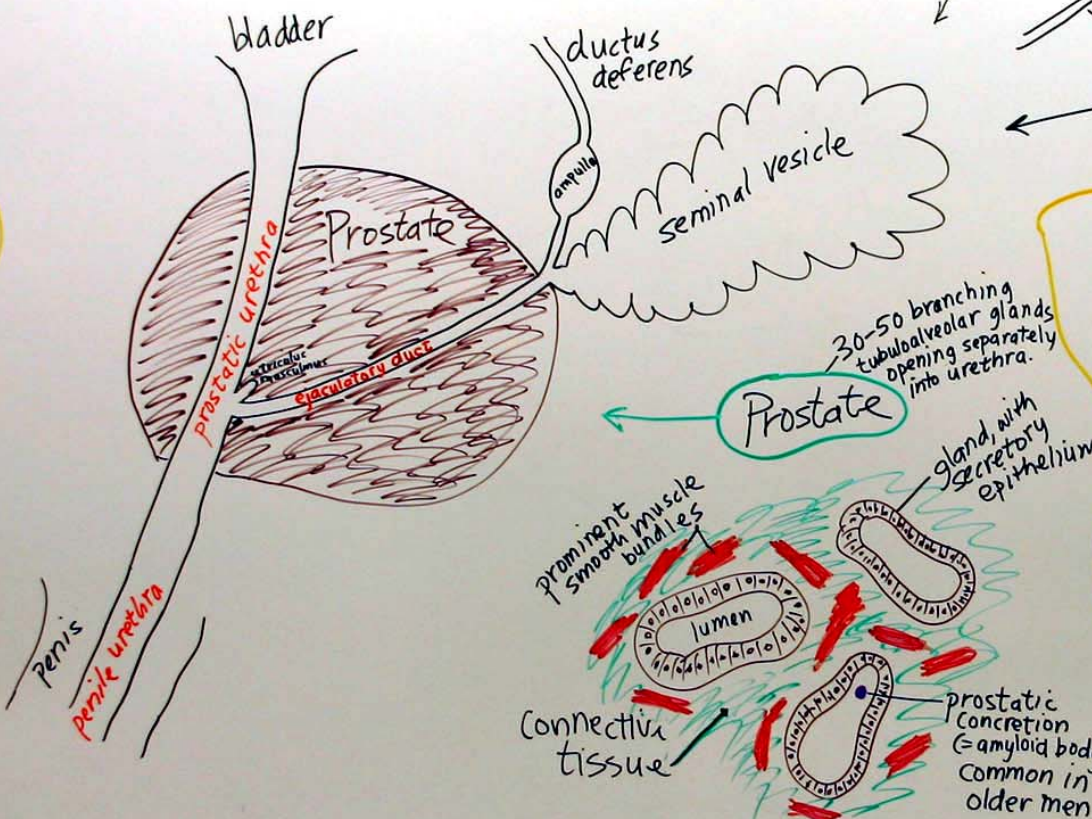 bladder
ductus
deferens
ampulla
seminal vesicle
Prostate
prostatic urethra
utriculus
masculinus
ejaculatory duct
30-50 branching
tubuloalveolar glands
opening separately
into urethra.
Prostate
gland, with
secretory
epithelium
prominent
smooth muscle
bundles
lumen
penis
penile urethra
connective
tissue
prostatic
concretion
(=amyloid bod
common in
older men